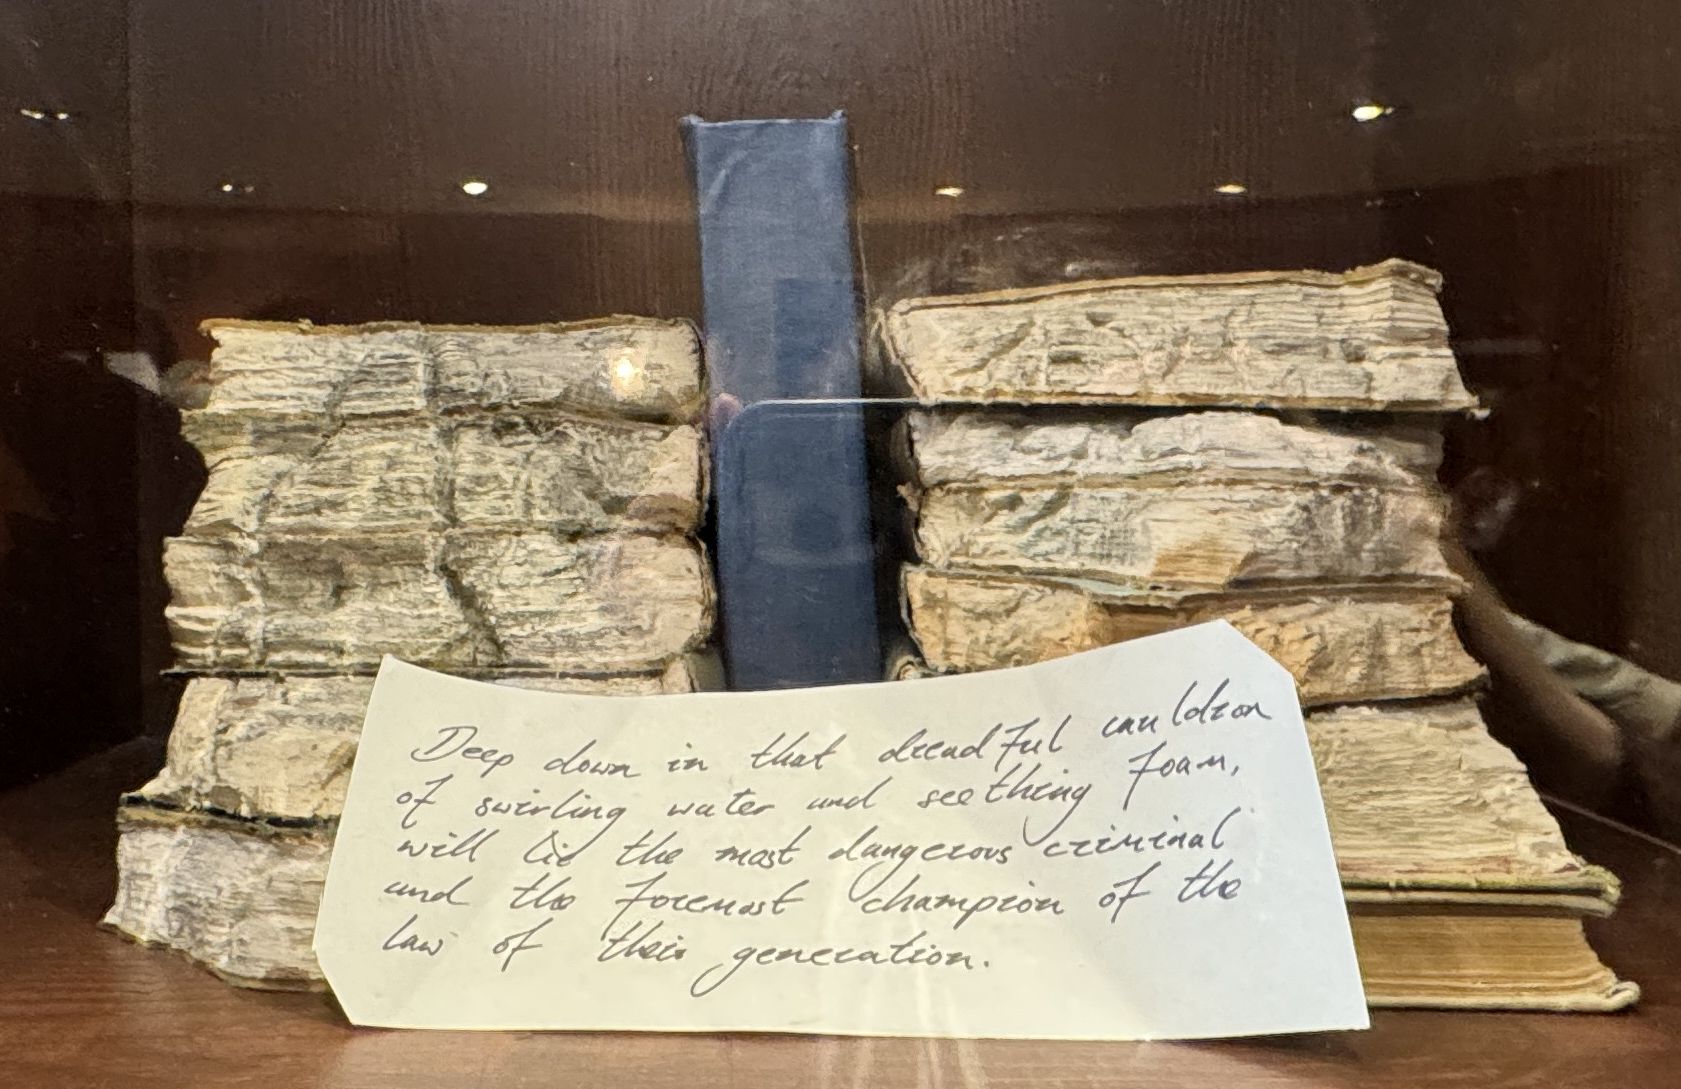 Deep down in that dreadful cauldron
of swirling water and seething foam,
will lie the most dangerous criminal
and the foremost champion of the
law of their generation.